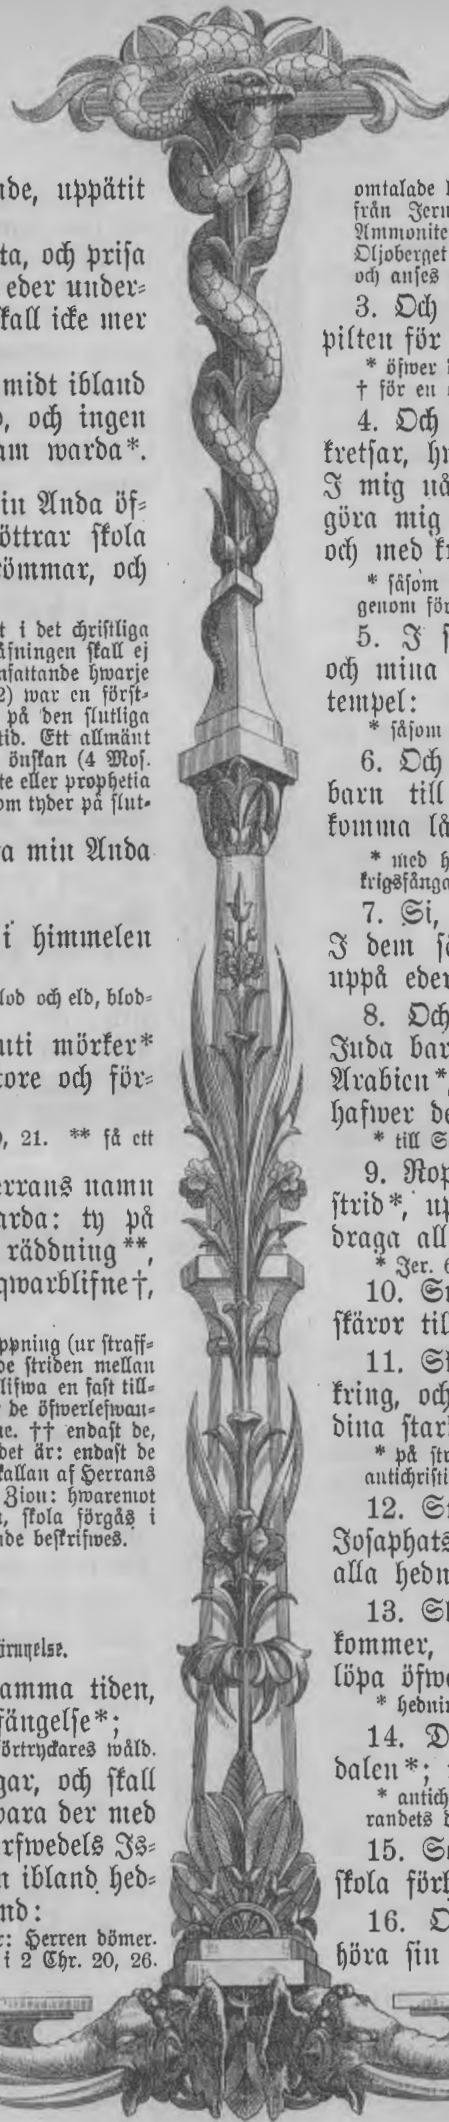 nde, uppätit
ta, och prisa
eder under-
kall icke mer
midt ibland
o, och ingen
am warda*.
in Anda öf-
öttrar skola
römmar, och
t i det christliga
åsningen skall ej
nfattande hwarje
2) war en först-
på den slutliga
tid. Ett allmänt
önskan (4 Mos.
te eller prophetia
om tyder på slut-
ra min Anda
i himmelen
lod och eld, blod-
uti mörker*
tore och för-
, 21. ** få ett
errans namn
arda: ty på
räddning**,
qwarblifne†,
ppning (ur straff-
be striden mellan
lifwa en fast till-
de öfwerlefwan-
ne. †† endast de,
det är: endast de
kallan af Herrans
Zion: hwaremot
n, skola förgås i
nde beskrifwes.
ärnyelse.
amma tiden,
fängelse*;
örtryckares wåld.
gar, och skall
vara der med
rfwedels Is-
n ibland hed-
nd:
r: Herren dömer.
i 2 Chr. 20, 26.
omtalade
från Jeru
Ammonite
Oljoberget
och anses
3. Och
pilten för
* öfwer
† för en
4. Och
kretsar, hw
I mig nå
göra mig
och med kr
* såsom
genom för
5. I s
och mina
tempel:
* såsom
6. Och
barn till
komma lå
* med h
krigsfånga
7. Si,
I dem så
uppå eder
8. Och
Juda bar
Arabien*,
hafwer de
* till S
9. Rop
strid*, up
draga all
* Jer. 6
10. Sm
skäror til
11. Sl
kring, och
dina stark
* på str
antichristi
12. Sm
Josaphats
alla hedn
13. Sl
kommer,
löpa öfwe
* hednin
14. D
dalen*;
* antich
randets d
15. So
skola förh
16. O
höra sin